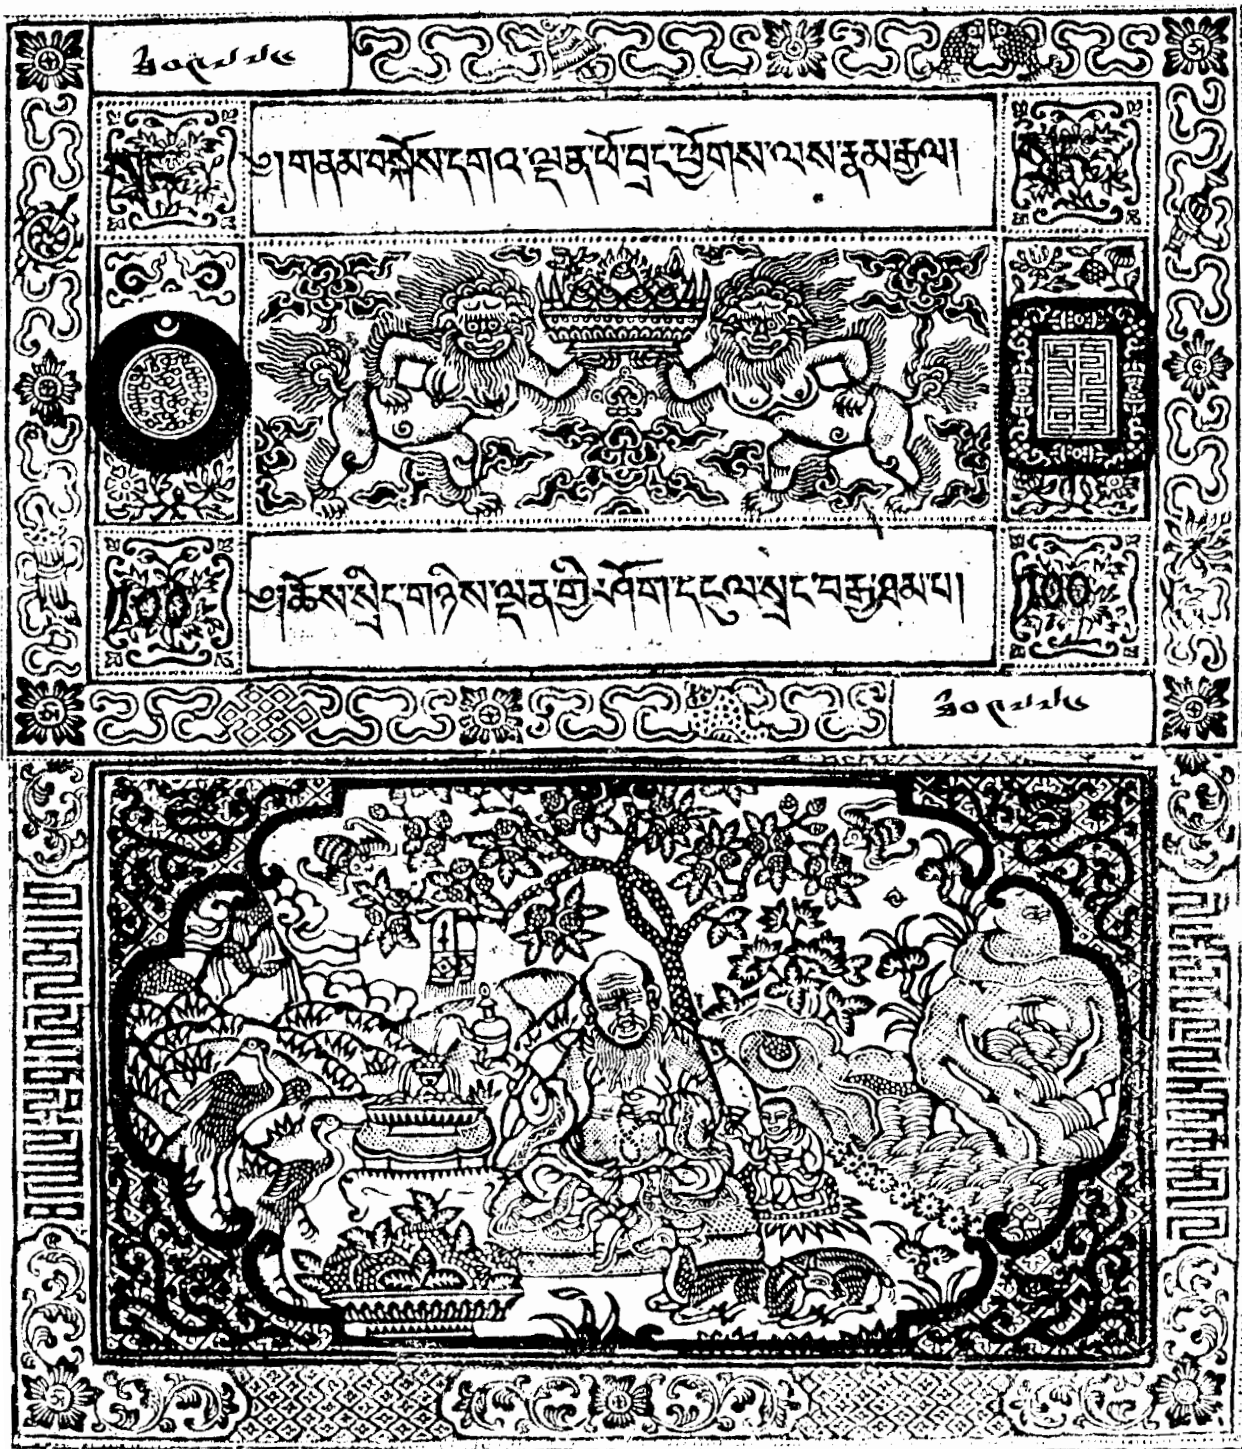 ༄།གནམ་བསྐོས་དགའ་ལྡན་ཕོ་བྲང་ཕྱོགས་ལས་རྣམ་རྒྱལ།
100 ༄།ཆོས་སྲིད་གཉིས་ལྡན་གྱི་ཤོག་དངུལ་སྲང་བརྒྱ་ཐམ་པ། 100